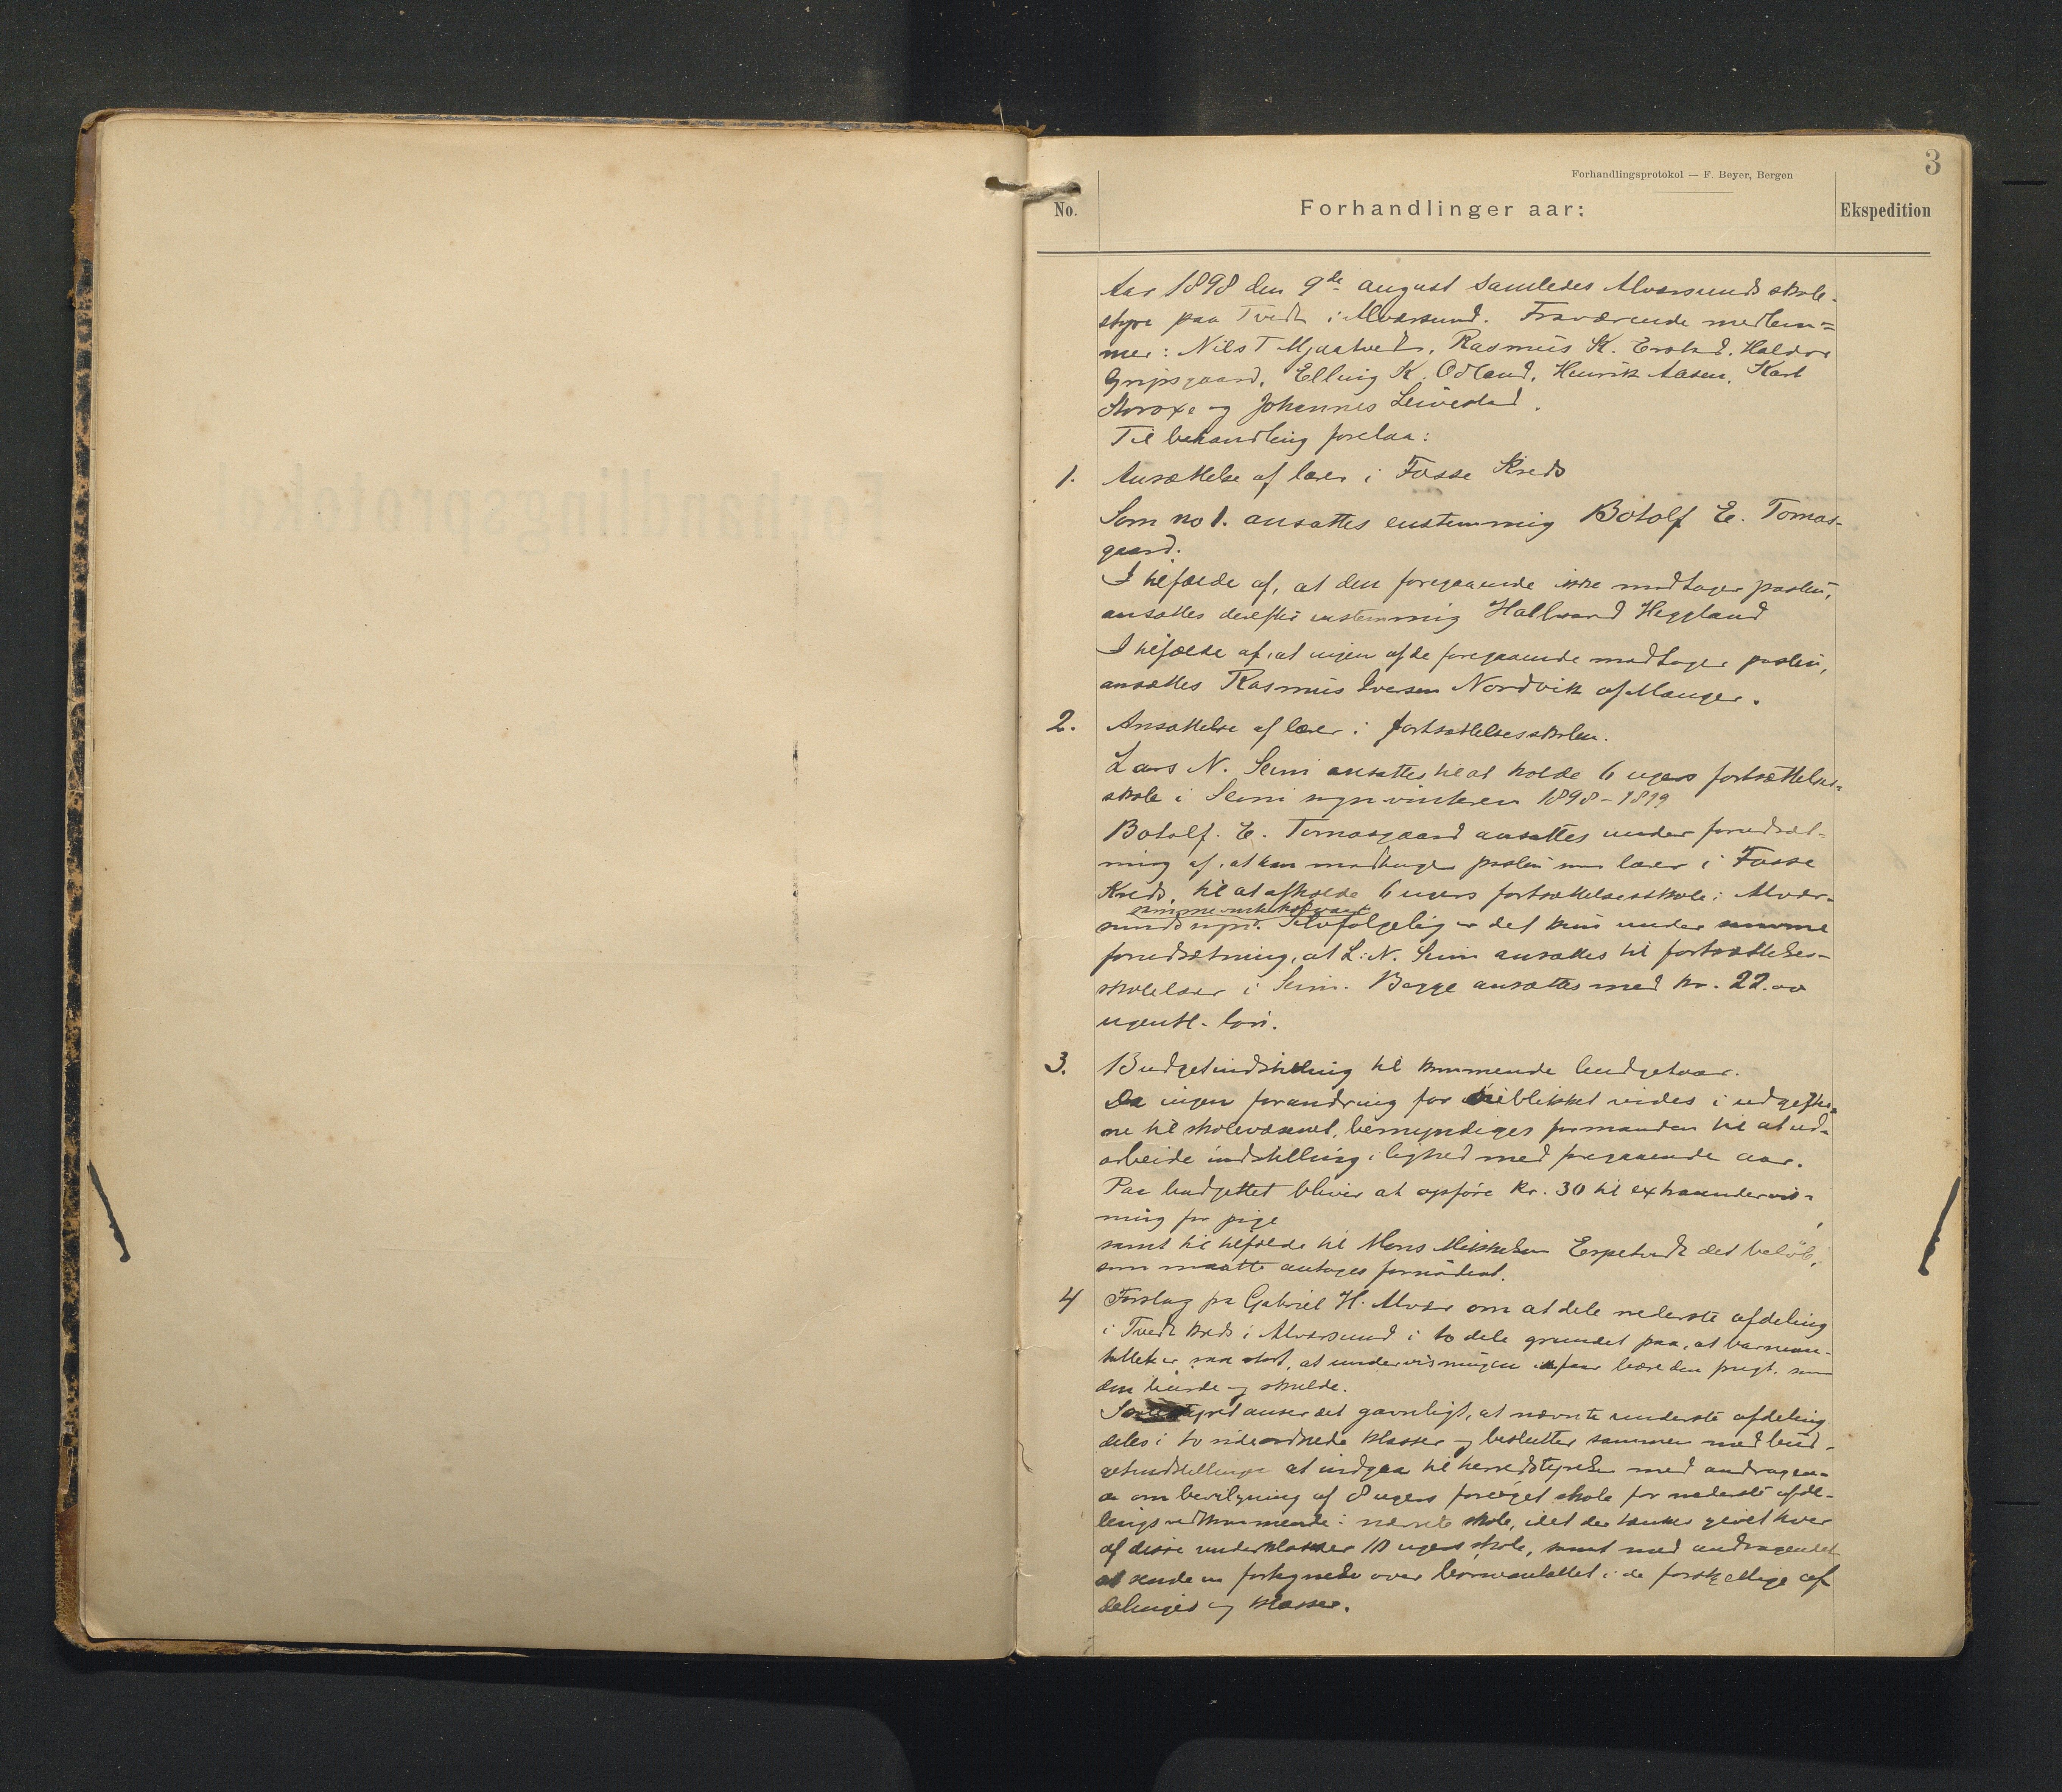 3
Forhandlingsprotokol — F. Beyer, Bergen
No.
Forhandlinger aar:
Ekspedition
Aar 1898 den 9de august samledes Alversund skole-
styre paa Tvedt i Alversund. Fraværende medlem=
mer: Nils T Mjaatvedt, Rasmus K. Erstad, Haldor
Gripsgaard, Elling K. Odland, Henrik Aasen, Karl
og Johannes
Til behandling forelaa:
1. Ansættelse af lærer i Fosse Kreds
Som no 1. ansattes enstemmig Botolf E. Tomas-
gaard.
I tilfælde af, at den foregaaende ikke modtager posten,
ansattes derefter enstemmig Hallvard Heggland
I tilfælde af, at ingen af de foregaaende modtager posten,
ansættes Rasmus Iversen Nordvik af Manger.
2. Ansættelse af lærer i fortsættelsesskolen.
Lars N. Seim ansattes til at holde 6 ugers fortsættelses-
skole i Seim sogn vinteren 1898-1899
Botolf. E. Tomasgaard ansattes under forudsæt-
ning af, at han modtager posten som lærer i Fosse
Kreds, til at afholde 6 ugers fortsættelsesskole i Alver-
sunds sogn. Selvfølgelig er det kun under samme
forudsætning, at L. N. Seim ansattes til fortsættelses-
skolelærer i Seim. Begge ansattes med kr. 22.00
ugentl. løn.
3. Budgetindstilling til kommende budgetaar.
Da ingen forandring for øieblikket vides i udgifter-
ne til skolevæsenet, bemyndiges formanden til at ud-
arbeide indstilling i lighed med foregaaende aar.
Paa budgettet bliver at opføre kr. 30 til extraundervis-
ning for pige
samt til tilfælde til Mons Mikkelsen Espetvedt det beløb,
som maatte antages fornødent.
4 Forslag fra Gabriel H. Alver om at dele nederste afdeling
i Tvedt kreds i Alversund i to dele grundet paa, at barnean-
tallet er saa stort, at undervisningen ei faar bære den frugt, som
den burde og skulde.
anser det gavnligt, at nævnte underste afdeling
deles i to sideordnede klasser og beslutter sammen med bud-
getindstillingen at indgaa til herredstyrelsen med andragen-
de om bevilgning af 8 ugers forøget skole for nederste afde-
lings vedkommende i nævnte skole, idet der tænkes givet hver
af disse underklasser 10 ugers skole, samt med andragendet
at sende en fortegnelse over børneantallet i de forskjellige af
delinger og klasser.